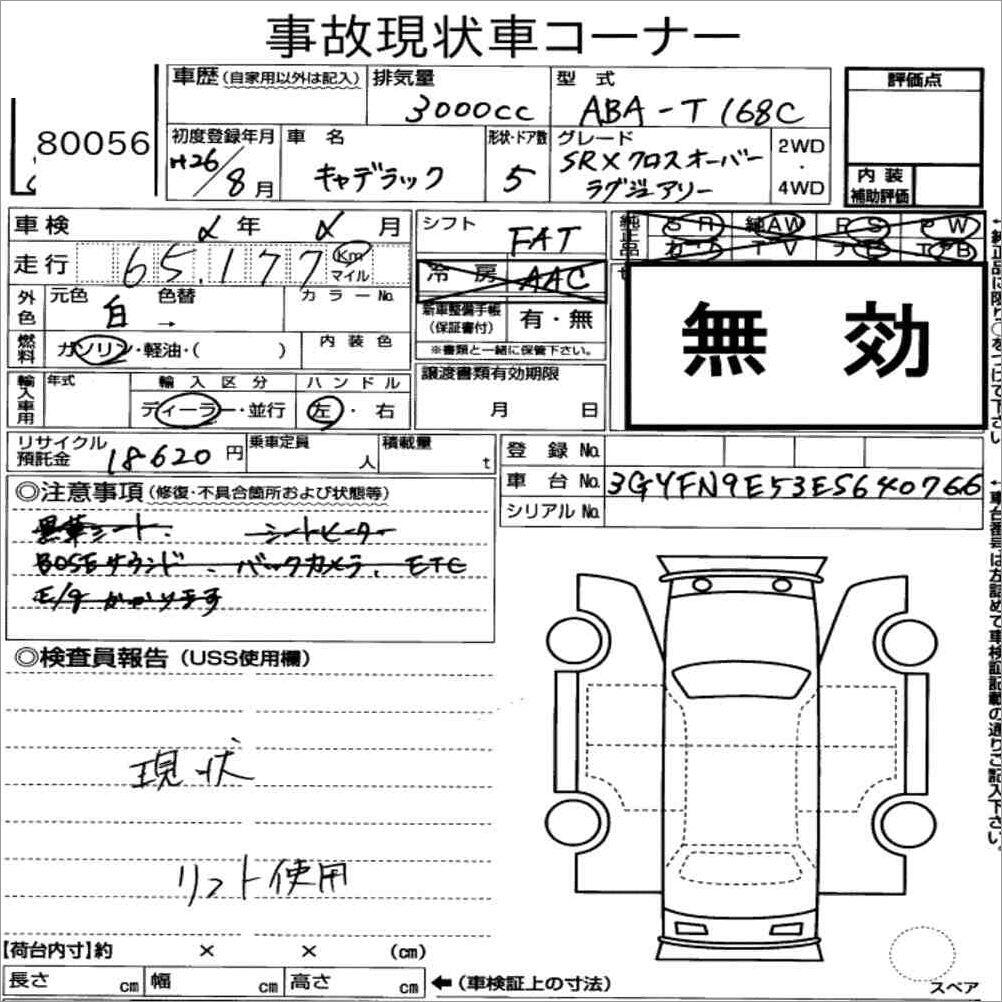 事故現状車コーナー
80056
車歴(自家用以外は記入) 排気量 型式 評価点
3000cc ABA-T168C
初度登録年月 車名 形状・ドア数 グレード 2WD・4WD 内装補助評価
H26/8月 キャデラック 5 SRXクロスオーバー
ラグジュアリー
車検 年 月 シフト FAT
純正品 SR 純AW PS PW
カワ TV ナビ エアB
走行 65,177 Km マイル 冷房 AAC
外色 元色 白 色替 → カラーNo.
新車整備手帳(保証書付) 有・無
※書類と一緒に保管下さい。
無効
燃料 ガソリン・軽油・( ) 内装色
輸入車用 年式 輸入区分 ハンドル
ディーラー・並行 左・右
譲渡書類有効期限
月 日
リサイクル預託金 18620円 乗車定員 人 積載量 t
登録No.
車台No. 3GYFN9E53ES640766
シリアルNo.
◎注意事項(修復・不具合箇所および状態等)
黒革シート. シートヒーター
BOSEサウンド. バックカメラ. ETC
E/g かかります
◎検査員報告(USS使用欄)
現状
リフト使用
【荷台内寸】約 × × (cm)
長さ cm 幅 cm 高さ cm ←(車検証上の寸法)
スペア
←純正品に限り○をつけて下さい
←車台番号は左詰めで車検証記載の通りご記入下さい。